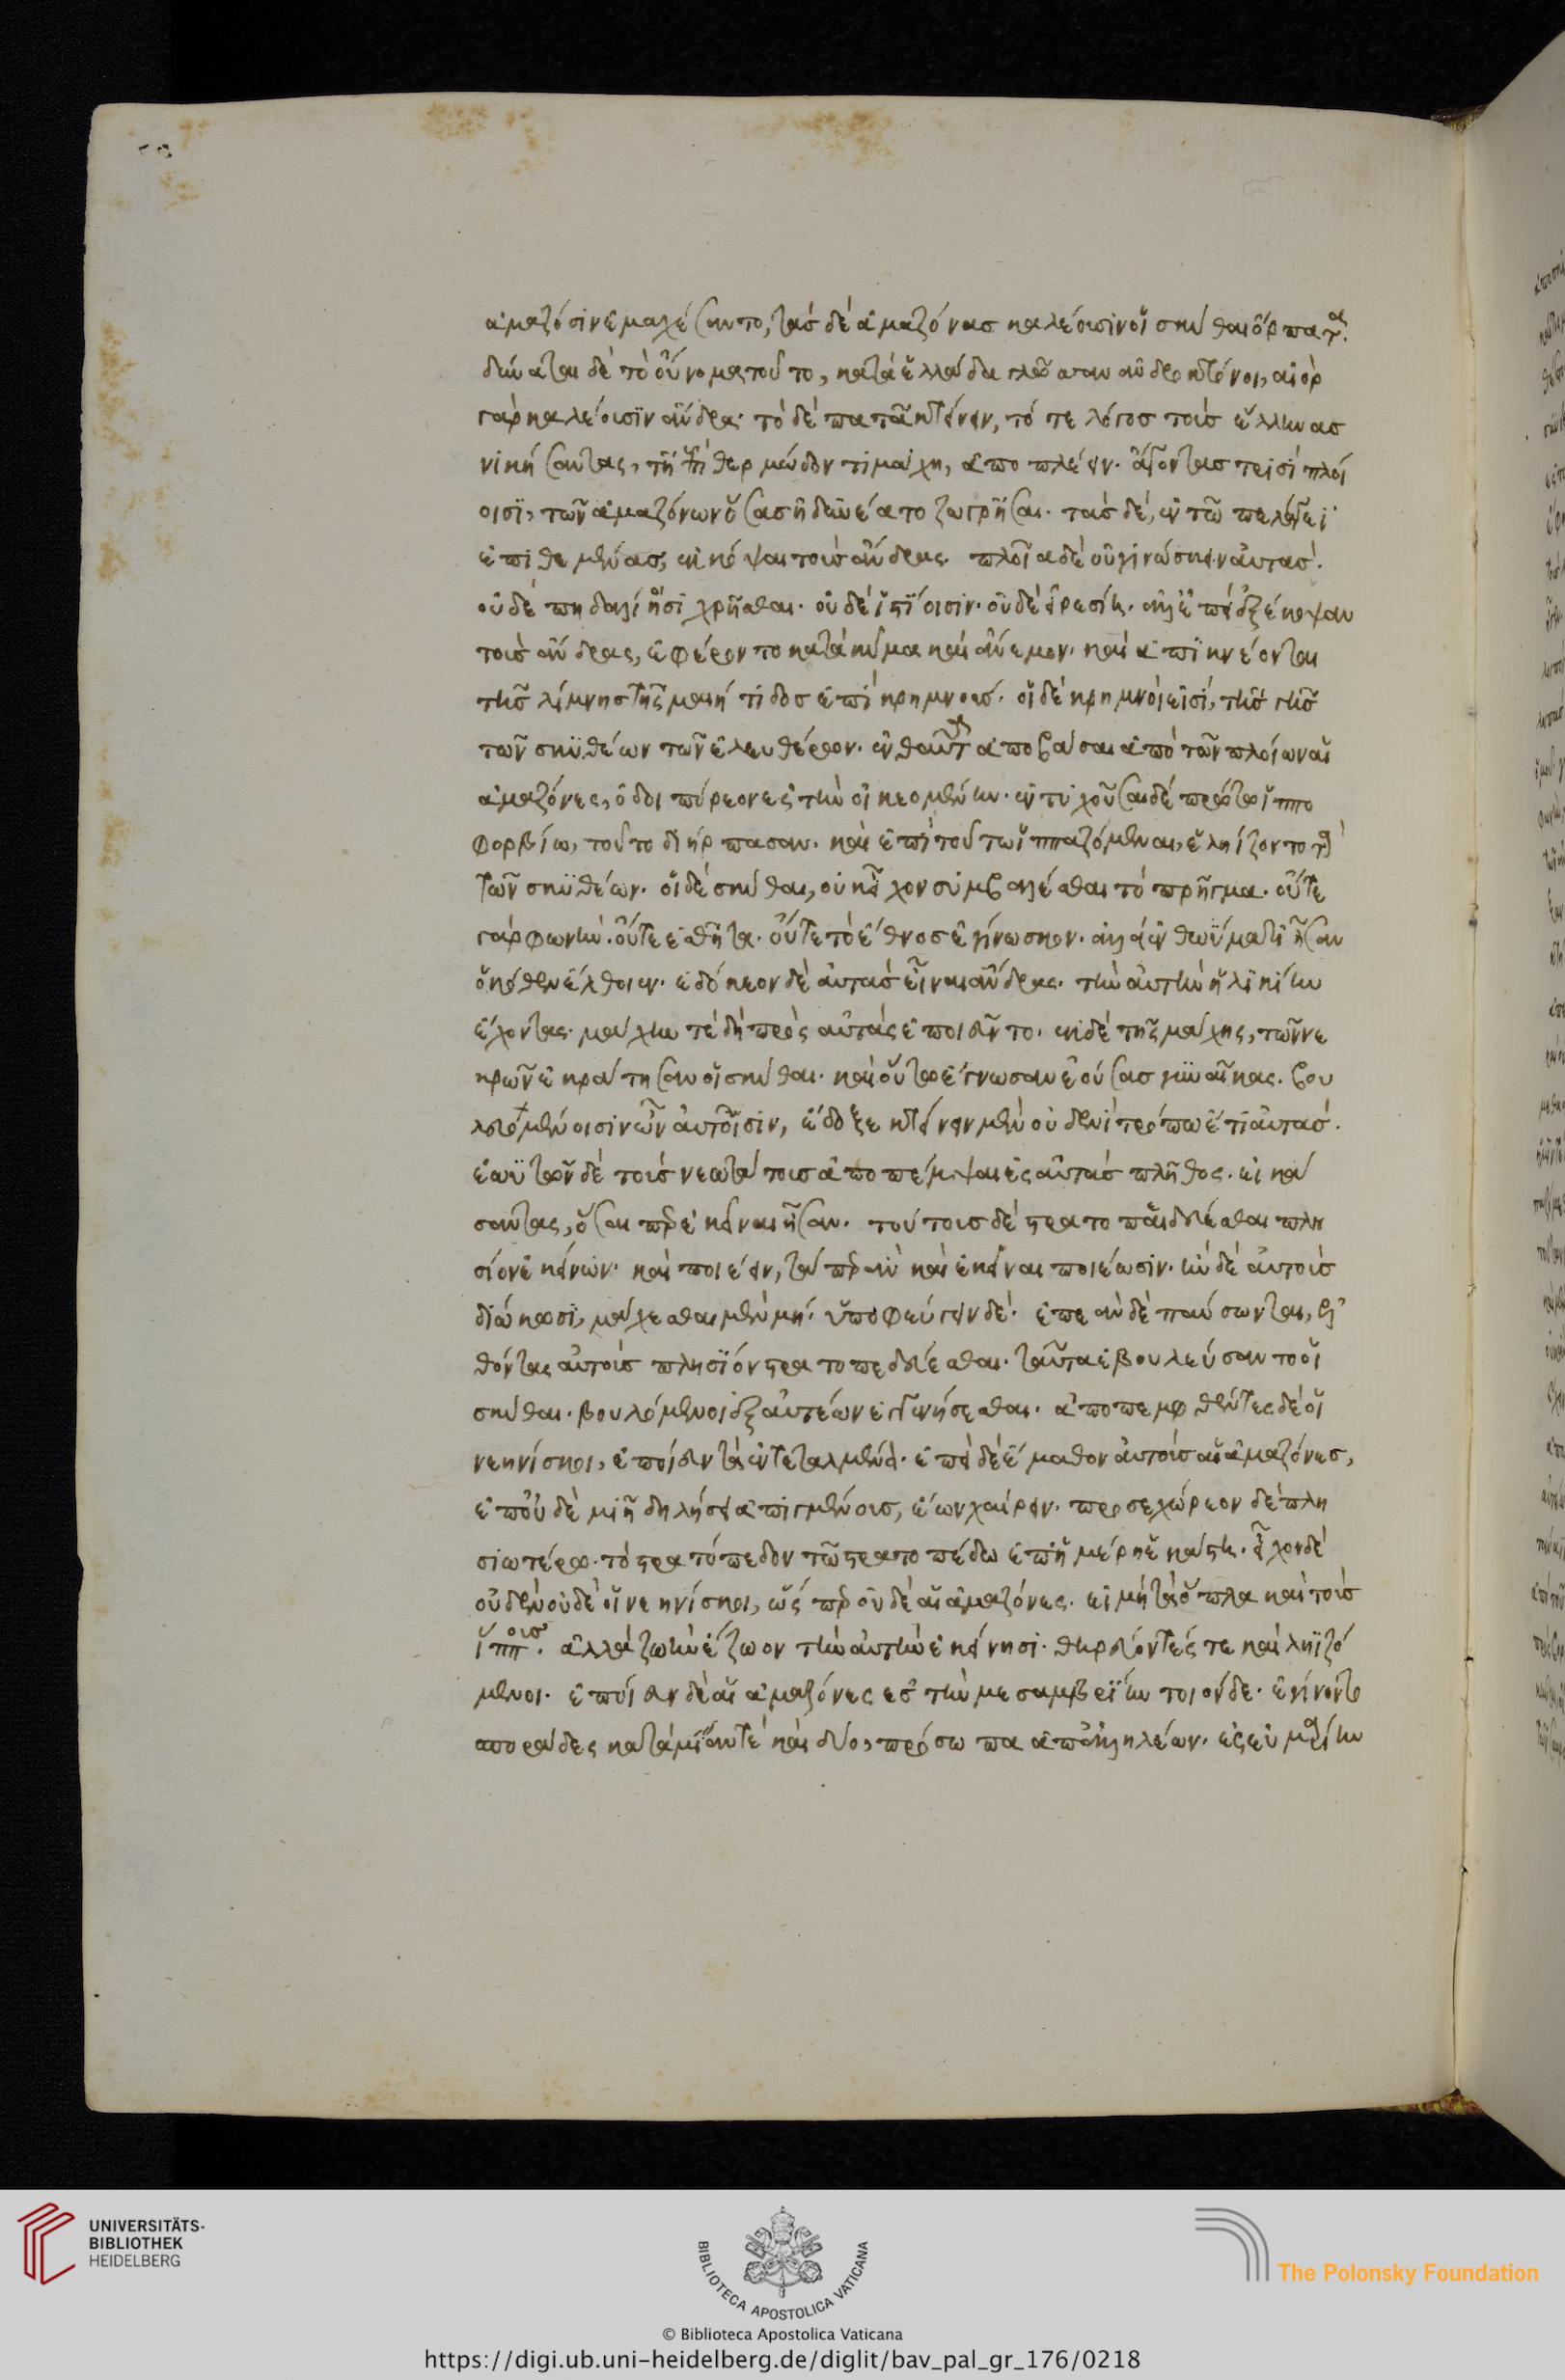 ἀμαζόσιν ἐμαχέσαντο, τὰς δὲ ἀμαζόνας καλέουσιν οἱ σκύθαι ὁρπατα.
δύναται δὲ τὸ οὔνομα τοῦτο, κατὰ ἑλλάδα γλῶσσαν ἀνδροκτόνοι, αἰὸρ
γὰρ καλέουσϊν ἄνδρα· τὸ δὲ πατὰ κτείνειν, τό τε λόγος τοὺς ἕλληνας
νικήσαντας, τῆ ἐπὶ θερμώδοντι μάχη, ἀποπλέειν. ἄγοντας τρισὶ πλοί
οισϊ, τῶν ἀμαζόνων ὅσας ἠδυνέατο ζωγρῆσαι. τὰς δὲ, ἐν τῶ πελάγεϊ
ἐπιθεμένας, ἐκκόψαι τοὺς ἄνδρας. πλοῖα δὲ οὐ γινώσκειν αὐτὰς.
οὐδὲ πηδαλίησι χρῆσθαι. οὐδὲ ἱστίοισιν. οὐδὲ εἰρεσίη. ἀλλ' ἐπεὶ ἐξέκοψαν
τοὺς ἄνδρας, ἐφέροντο κατὰ κῦμα καὶ ἄνεμον. καὶ ἀπικνέονται
τῆς λίμνης τῆς μαιήτιδος ἐπὶ κρημνούς. οἱ δὲ κρημνοὶ εἰσὶ, τῆς γῆς
τῶν σκυθέων τῶν ἐλευθέρων. ἐνθαῦτα ἀποβᾶσαι ἀπὸ τῶν πλοίων αἱ
ἀμαζόνες, ὁδοιπόρεον ἐς τὴν οἰκεομένην. ἐντυχοῦσαι δὲ πρώτω ἱππο
φορβίω, τοῦτο διήρπασαν. καὶ ἐπὶ τούτω ἱππαζόμεναι, ἐληίζοντο τὰ
τῶν σκυθέων. οἱ δὲ σκύθαι, οὐκ εἶχον συμβαλέσθαι τὸ πρῆγμα. οὔτε
γὰρ φωνὴν. οὔτε ἐσθῆτα. οὔτε τὸ ἔθνος ἐγίνωσκον. ἀλλ' ἐν θωύματι ἦσαν
ὁκόθεν ἔλθοιεν. ἐδόκεον δὲ αὐτὰς εἶναι ἄνδρας. τὴν αὐτὴν ἡλικίην
ἔχοντας. μάχην τε δὴ πρὸς αὐτὰς ἐποιεῦντο. ἐκ δὲ τῆς μάχης, τῶν νε
κρῶν ἐκράτησαν οἱ σκύθαι. καὶ οὕτω ἔγνωσαν ἐούσας γυναῖκας. βου
λευομένοισιν ὦν αὐτοῖσιν, ἔδοξε κτείνειν μὲν οὐδενὶ τρόπω ἔτι αὐτὰς.
ἑωϋτῶν δὲ τοὺς νεωτάτους ἀποπέμψαι ἐς αὐτὰς πλῆθος. εἰκά
σαντας, ὅσαι περ ἐκεῖναι ἦσαν. τούτους δὲ στρατοπεδεύεσθαι πλη
σίον ἐκείνων. καὶ ποιέειν, τά περ ἂν καὶ ἐκεῖναι ποιέωσιν. ἢν δὲ αὐτοὺς
διώκωσι, μάχεσθαι μὲν μή. ὑποφεύγειν δέ. ἐπεὰν δὲ παύσωνται, ἐλ
θόντας αὐτοὺς πλησίον στρατοπεδεύεσθαι. ταῦτα ἐβουλεύσαντο οἱ
σκύθαι. βουλόμενοι ἐξ αὐτέων ἐκγενήσεσθαι. ἀποπεμφθέντες δὲ οἱ
νεηνίσκοι, ἐποίευν τὰ ἐντεταλμένα. ἐπεὶ δὲ ἔμαθον αὐτοὺς αἱ ἀμαζόνες,
ἐπ' οὐδεμιῆ δηλήσει ἀπιγμένους, ἔων χαίρειν. προσεχώρεον δὲ πλη
σιωτέρω. τὸ στρατόπεδον τῶ στρατοπέδω ἐπ' ἡμέρη ἑκάστη. εἶχον δὲ
οὐδὲν οὐδὲ οἱ νεηνίσκοι, ὥς περ οὐδὲ αἱ ἀμαζόνες. εἰ μὴ τὰ ὅπλα καὶ τοὺς
ἵππους. ἀλλὰ ζωὴν ἔζωον τὴν αὐτὴν ἐκείνησι. θηρεύοντές τε καὶ ληϊζό
μενοι. ἐποίευν δὲ αἱ ἀμαζόνες ἐς τὴν μεσαμβρίην τοιόνδε. ἐγίνοντο
σποράδες κατὰ μίαν τὲ καὶ δύο, πρόσω πα ἀπ' ἀλληλέων. ἐς εὐμαρίην
UNIVERSITÄTS-
BIBLIOTHEK
HEIDELBERG
BIBLIOTECA APOSTOLICA VATICANA
The Polonsky Foundation
© Biblioteca Apostolica Vaticana
https://digi.ub.uni-heidelberg.de/diglit/bav_pal_gr_176/0218